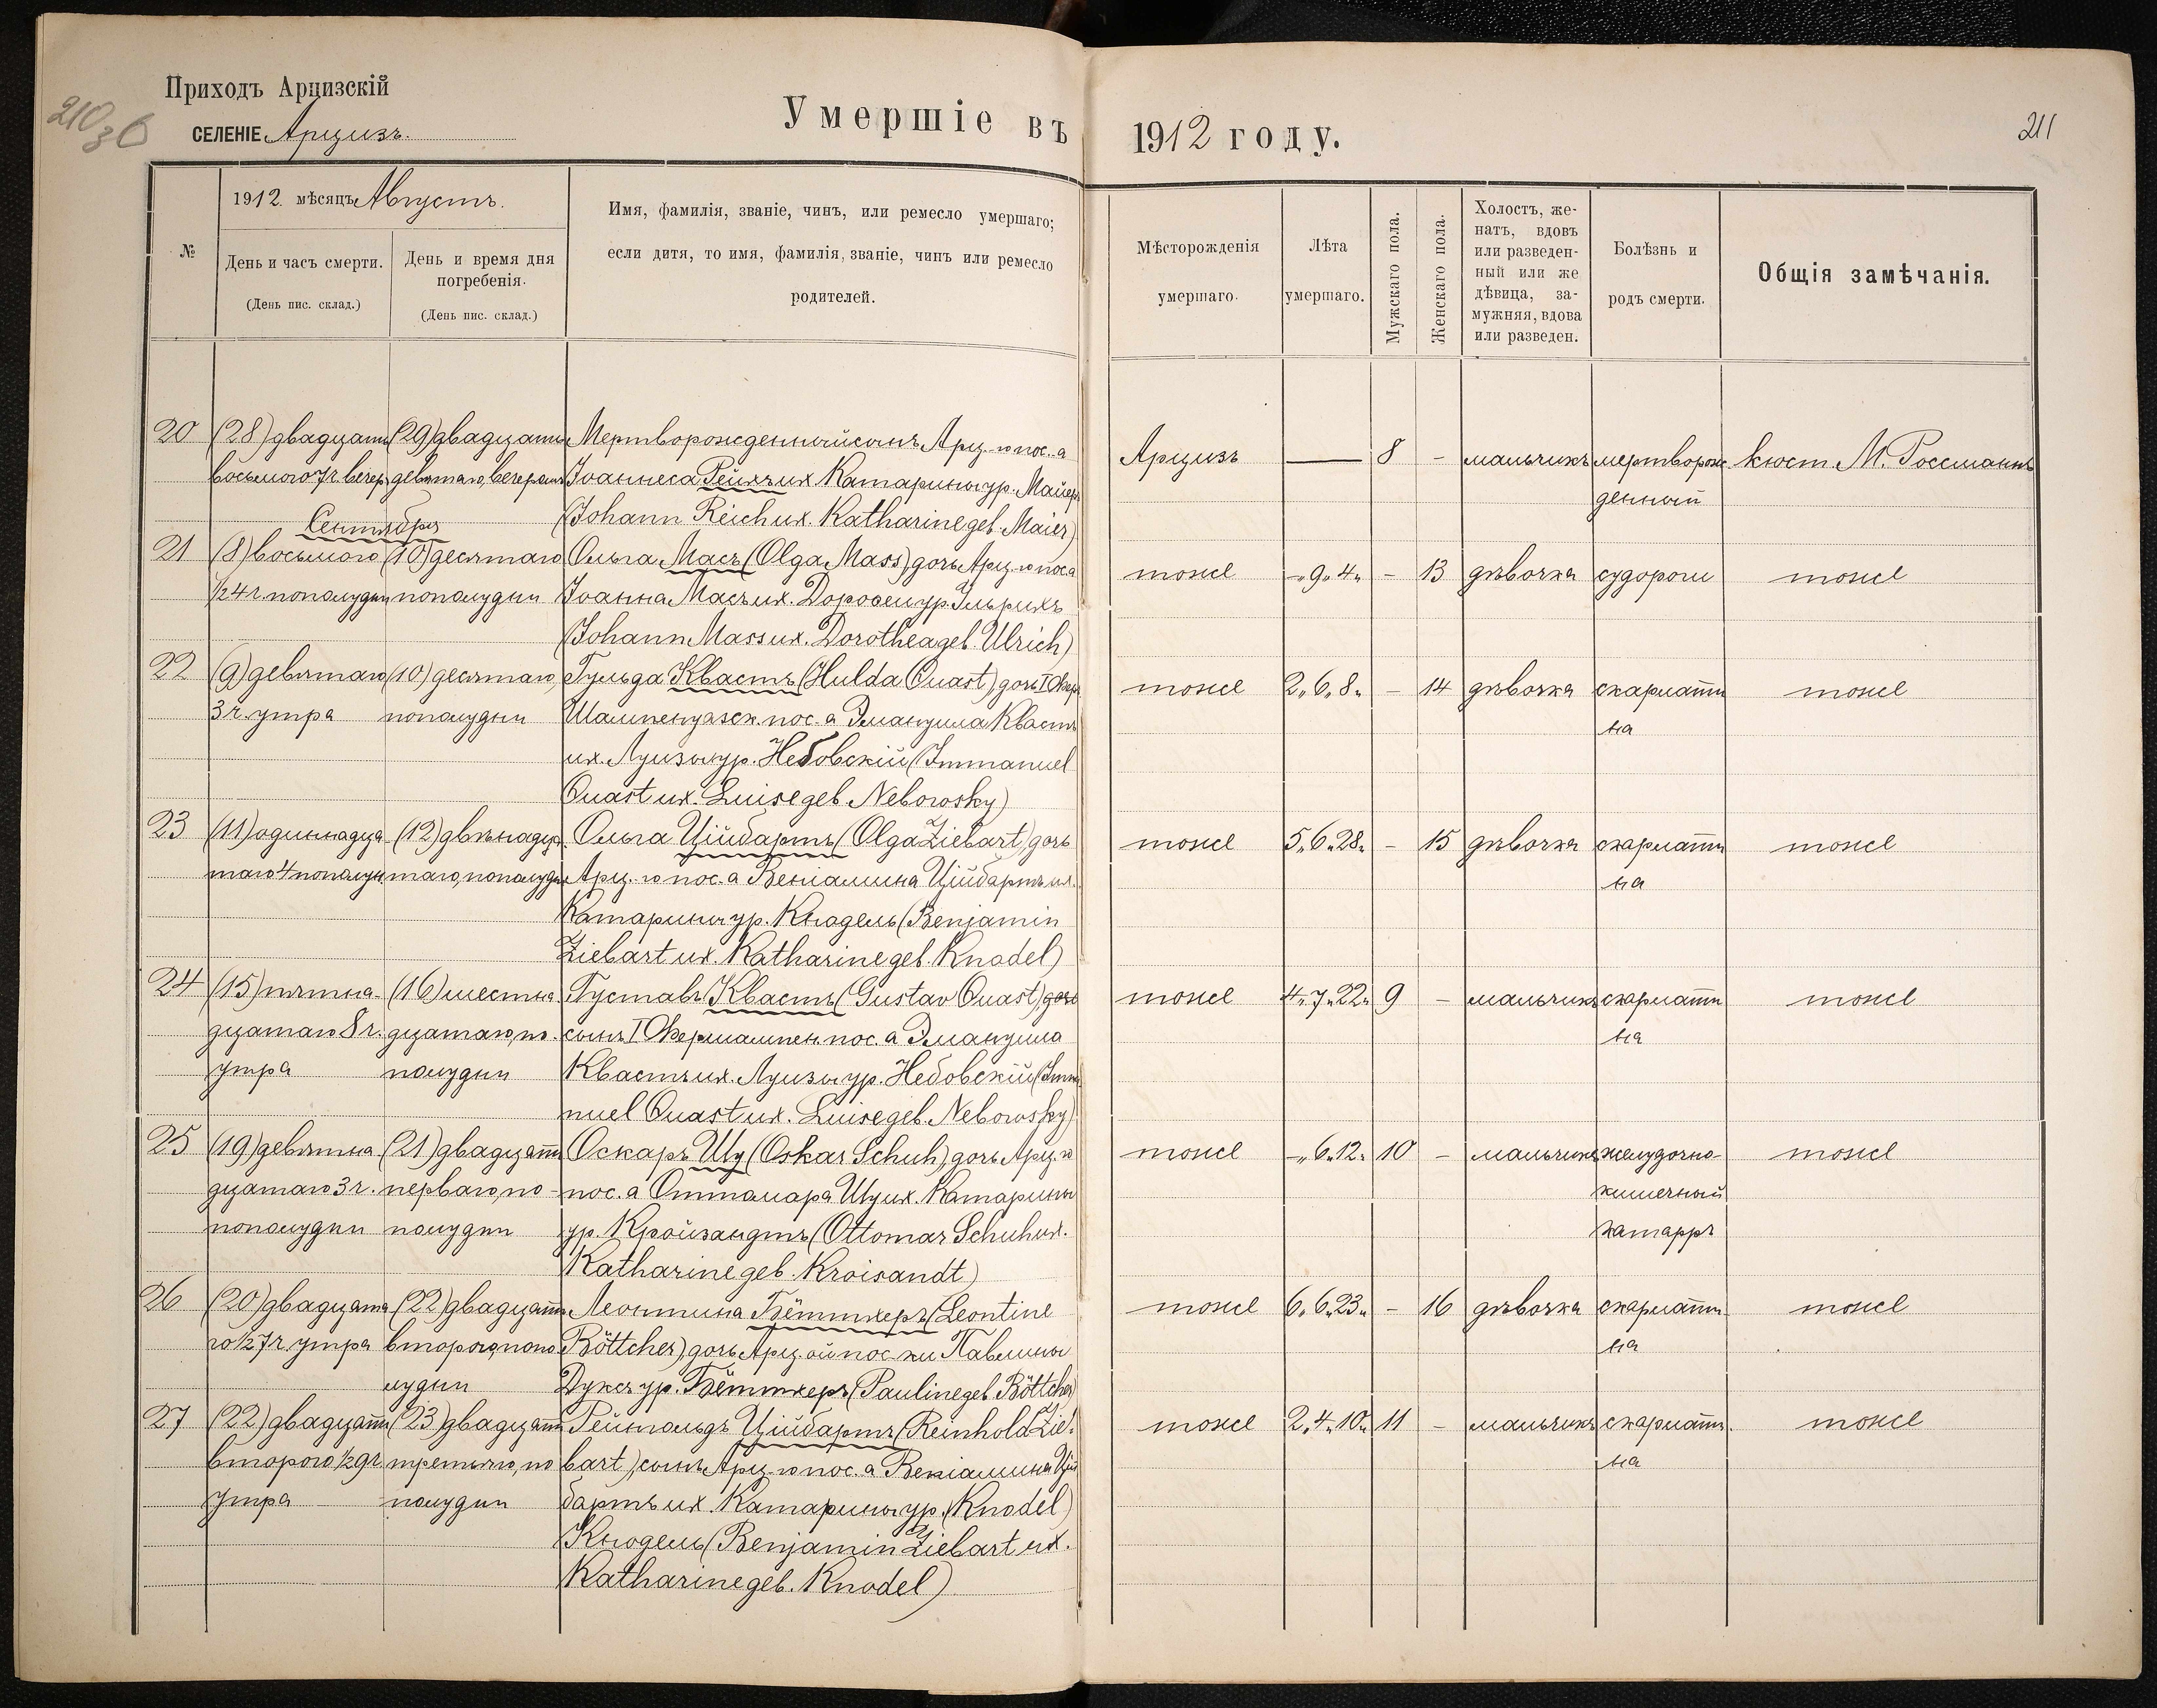 210 об
Приходъ Арцизскій
СЕЛЕНІЕ Арцизъ.
Умершіе въ 1912 году.
211
№
1912. мѣсяцъ Августъ.
День и часъ смерти.
(День пис. склад.)
День и время дня
погребенія.
(День пис. склад.)
Имя, фамилія, званіе, чинъ, или ремесло умершаго;
если дитя, то имя, фамилія, званіе, чинъ или ремесло
родителей.
Мѣсторожденія
умершаго.
Лѣта
умершаго.
Мужскаго пола.
Женскаго пола.
Холостъ, же-
натъ, вдовъ
или разведен-
ный или же
дѣвица, за-
мужняя, вдова
или разведен.
Болѣзнь и
родъ смерти.
Общія замѣчанія.
20 (28) двадцать (29) двадцать Мертворожденный сынъ Арц.-го пос.-а Арцизъ — 8 - мальчикъ мертворож кюст. М. Россманнъ
восьмого 7 ч. вечер. девятаго, вечеромъ Іоаннеса Рейхъ их. Катарины ур. Майеръ денный
(Johann Reich ux. Katharine geb. Maier)
Сентября
21 (8) восьмого (10) десятаго Ольга Масъ (Olga Mass) дочь Арц.-го пос.а тоже -„9„4„ - 13 дѣвочка судороги тоже
1/2 4 ч. пополудни пополудни Іоанна Масъ их. Доротеи ур. Ульрихъ
(Johann Mass ux. Dorothea geb. Ulrich)
22 (9) девятаго (10) десятаго, Гульда Квастъ (Hulda Quast) дочь I Фер тоже 2„6„8„ - 14 дѣвочка скарлати тоже
3 ч. утра пополудни Шампенуазск. пос.а Эмануила Квастъ на
их. Луизы ур. Небовскій (Immanuel
Quast ux. Luise geb. Nebowsky)
23 (11) одиннадца- (12) двѣнадца- Ольга Ційбартъ (Olga Ziebart) дочь тоже 5„6„28„ - 15 дѣвочка скарлати тоже
таго 4 пополудн таго, пополудни Арц.-го пос.а Веніамина Ційбартъ их. на
Катарины ур. Кнодель (Benjamin
Ziebart ux. Katharine geb. Knodel)
24 (15) пятна- (16) шестна- Густавъ Квастъ (Gustav Quast) дочь тоже 4„7„22„ 9 - мальчикъ скарлати тоже
дцатаго 8 ч. дцатаго, по- сынъ I Фершампен. пос.а Эмануила на
утра полудни Квастъ их. Луизы ур. Небовскій (Imma
nuel Quast ux. Luise geb. Nebowsky)
25 (19) девятна (21) двадцать Оскаръ Шу (Oskar Schuh), дочь Арц.го тоже -„6„12„ 10 - мальчикъ желудочно- тоже
дцатаго 3 ч. перваго, по- пос.а Оттомара Шу их. Катарины кишечный
пополудни полудни ур. Кройзандтъ (Ottomar Schuh ux. катарръ
Katharine geb. Kroisandt)
26 (20) двадцата (22) двадцать Леонтина Бёттхеръ (Leontine тоже 6„6„23„ - 16 дѣвочка скарлати- тоже
го 1/2 7 ч. утра второго, попо Böttcher), дочь Арц.-ой пос-ки Павлины на
лудни Дуксъ ур. Бёттхеръ (Pauline geb. Böttcher)
27 (22) двадцать (23) двадцать Рейнгольдъ Ційбартъ (Reinhold Zie- тоже 2„4„10„ 11 - мальчикъ скарлати- тоже
второго 1/2 9 ч. третьяго, по bart), сынъ Арц.-го пос.а Веніамина Цій на
утра полудни бартъ их. Катарины ур. (Knodel)
Кнодель (Benjamin Ziebart ux.
Katharine geb. Knodel)